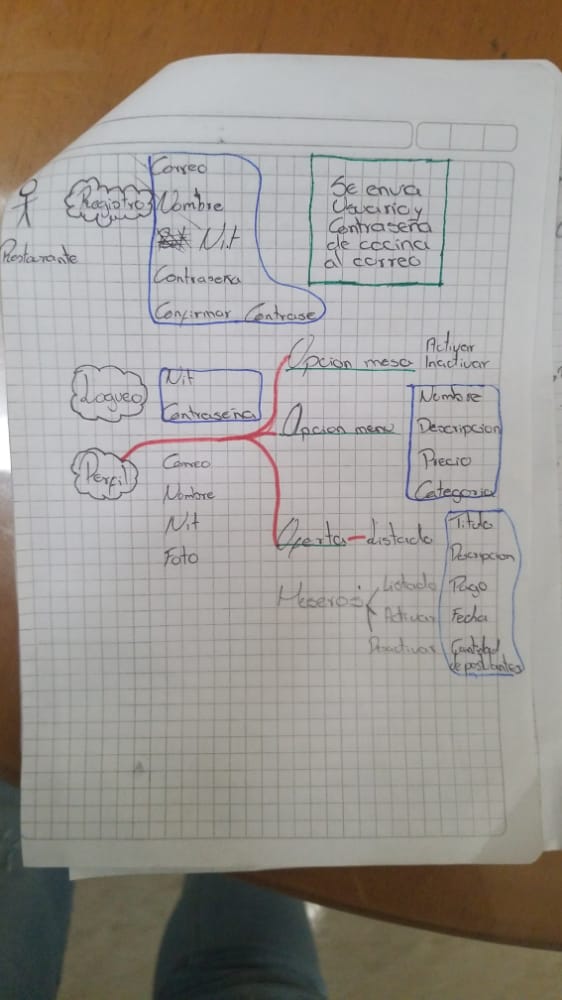 Restaurante
Registro
Correo
Nombre
Nit
Contraseña
Confirmar Contrase
Se envia
Usuario y
Contraseña
de cocina
al correo
Logueo
Nit
Contraseña
Perfil
Correo
Nombre
Nit
Foto
Opcion mesa
Activar
Inactivar
Opcion menu
Nombre
Descripcion
Precio
Categoria
Oferta - listado
Titulo
Descripcion
Pago
Fecha
Cantidad
de postulantes
Meseros
Listado
Activar
Desactivar